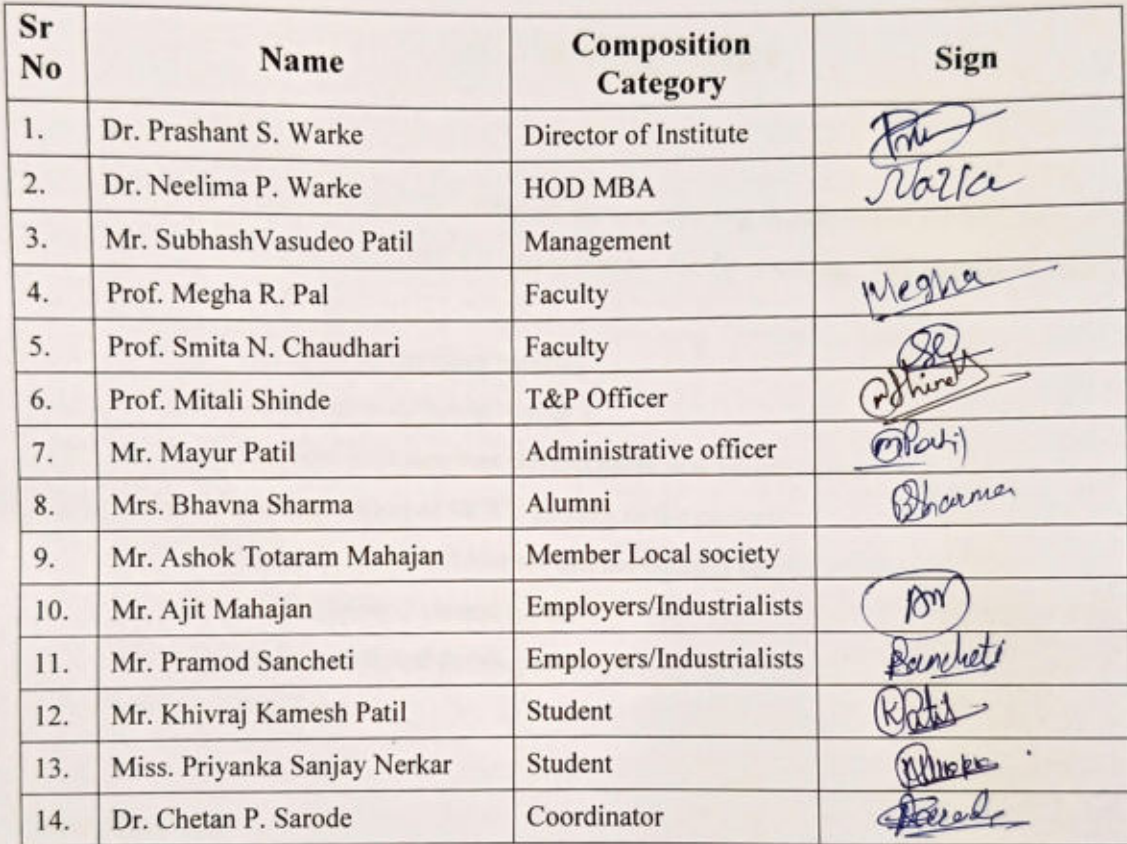 Sr No Name Composition Category Sign
1. Dr. Prashant S. Warke Director of Institute
2. Dr. Neelima P. Warke HOD MBA
3. Mr. SubhashVasudeo Patil Management
4. Prof. Megha R. Pal Faculty Megha
5. Prof. Smita N. Chaudhari Faculty
6. Prof. Mitali Shinde T&P Officer
7. Mr. Mayur Patil Administrative officer
8. Mrs. Bhavna Sharma Alumni
9. Mr. Ashok Totaram Mahajan Member Local society
10. Mr. Ajit Mahajan Employers/Industrialists
11. Mr. Pramod Sancheti Employers/Industrialists Sancheti
12. Mr. Khivraj Kamesh Patil Student KPatil
13. Miss. Priyanka Sanjay Nerkar Student
14. Dr. Chetan P. Sarode Coordinator